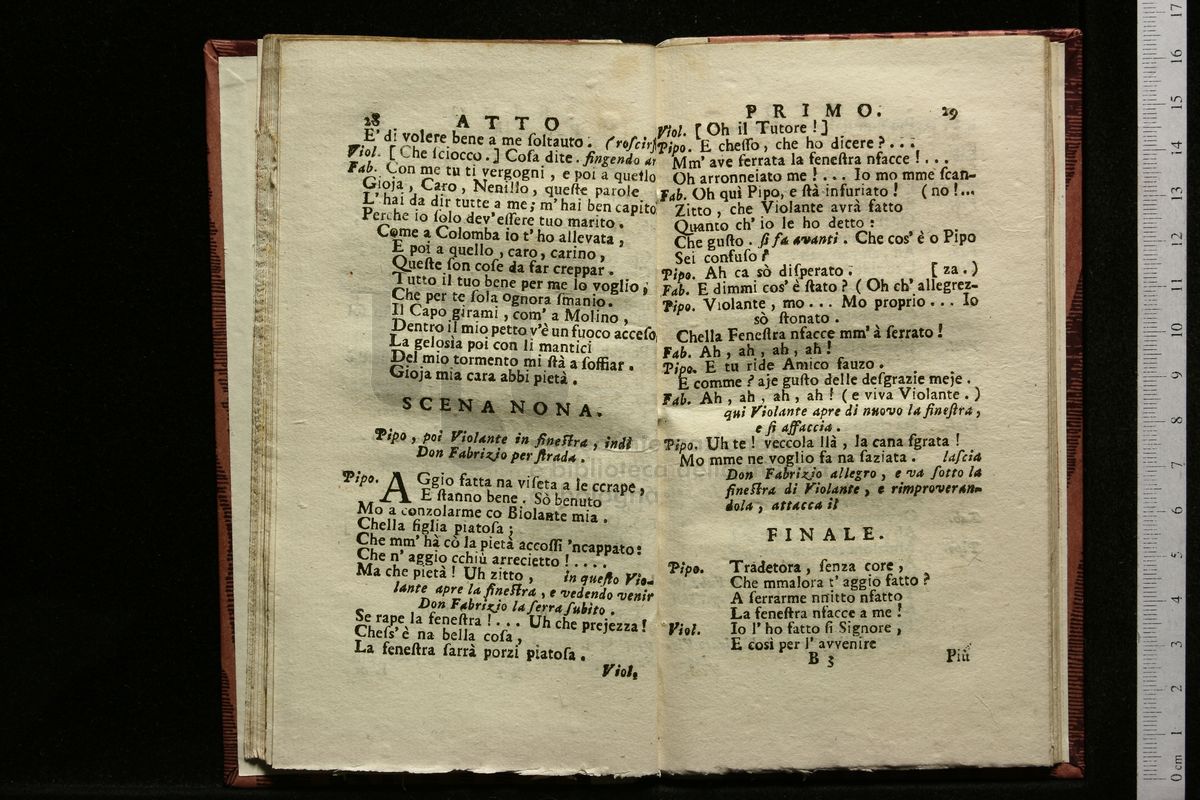 28 ATTO
E' di volere bene a me ſoltauto. (roſcirſ
Viol. [ Che ſciocco. ] Coſa dite. fingendo ar
Fab. Con me tu ti vergogni, e poi a quello
Gioja, Caro, Nenillo, queſte parole
L' hai da dir tutte a me; m' hai ben capito
Perche io ſolo dev'eſſere tuo marito.
Come a Colomba io t' ho allevata,
E poi a quello, caro, carino,
Queſte ſon coſe da far creppar.
Tutto il tuo bene per me lo voglio;
Che per te ſola ognora ſmanio.
Il Capo girami, com' a Molino,
Dentro il mio petto v'è un fuoco acceſo
La gelosìa poi con li mantici
Del mio tormento mi ſtà a ſoffiar.
Gioja mia cara abbi pietà.
SCENA NONA.
Pipo, poi Violante in fineſtra, indi
Don Fabrizio per ſtrada.
Pipo. AGgio fatta na viſeta a le ccrape,
E ſtanno bene. Sò benuto
Mo a conzolarme co Biolante mia.
Chella figlia piatoſa;
Che mm' hà cò la pietà accoſſi 'ncappato:
Che n' aggio cchiù arrecietto!....
Ma che pietà! Uh zitto, in queſto Vio-
lante apre la fineſtra, e vedendo venir
Don Fabrizio la ſerra ſubito.
Se rape la feneſtra!... Uh che prejezza!
Cheſs' è na bella coſa,
La feneſtra ſarrà porzì piatoſa.
Viol.
PRIMO. 29
Viol. [ Oh il Tutore! ]
Pipo. E cheſſo, che ho dicere?...
Mm' ave ferrata la feneſtra nfacce!...
Oh arronneiato me!... Io mo mme ſcan-
Fab. Oh quì Pipo, e ſtà infuriato! ( no!...
Zitto, che Violante avrà fatto
Quanto ch' io le ho detto:
Che guſto. ſi fa avanti. Che cos' è o Pipo
Sei confuſo?
Pipo. Ah ca sò diſperato. [ za. )
Fab. E dimmi cos' è ſtato? ( Oh ch' allegrez-
Pipo. Violante, mo... Mo proprio... Io
sò ſtonato.
Chella Feneſtra nfacce mm' à ſerrato!
Fab. Ah, ah, ah, ah!
Pipo. E tu ride Amico fauzo.
E comme? aje guſto delle deſgrazie meje.
Fab. Ah, ah, ah, ah! ( e viva Violante. )
qui Violante apre di nuovo la fineſtra,
e ſi affaccia.
Pipo. Uh te! veccola llà, la cana ſgrata!
Mo mme ne voglio fa na ſaziata. laſcia
Don Fabrizio allegro, e va ſotto la
fineſtra di Violante, e rimproveran-
dola, attacca il
FINALE.
Pipo. Tradetora, ſenza core,
Che mmalora t' aggio fatto?
A ſerrarme nnitto nfatto
La feneſtra nfacce a me!
Viol. Io l' ho fatto ſi Signore,
E così per l' avvenire
B 3 Più